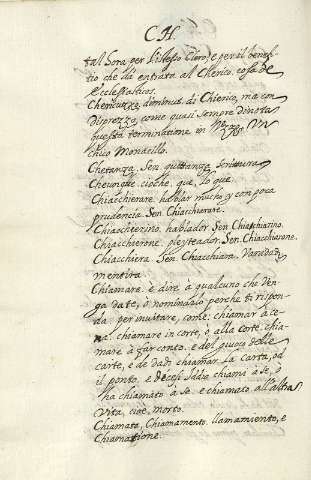 CH.
tal'hora per l'istesso Clero, e per il benefi-
tio che dà entrata al Cherico. cosa de
Ecclesiasticos.
Chericuzzo, diminut. di Chierico, ma con
disprezzo, come quasi sempre dinota
questa terminatione in Un
chico Monacillo.
Chetanza, Sen. quittanza, scrittura
Cheunque, cioche, que, lo que.
Chiacchierare, hablar mucho, y con poca
prudencia Sen. Chiacchierare.
Chiacchierino, hablador Sen. Chiacchiarino.
Chiacchierone, pleyteador. Sen. Chiacchiarone.
Chiacchiera, Sen. Chiacchiara, Vanedad,
mentira
Chiamare, è dire à qualcuno che Ven-
ga da te, ò nominarlo perche ti rispon-
da, per invitare, come, chiamar à ce-
na, chiamare in corte, ò alla corte, chia-
mare à far conto, e del giuoco delle
carte, e de dadi chiamar la Carta, od
il ponto, e dicesi Iddio chiami à se, ò
ha chiamato à se, e chiamato all'altra
Vita, cioè, morto.
Chiamata, Chiamamento, llamamiento, e
Chiamatione.